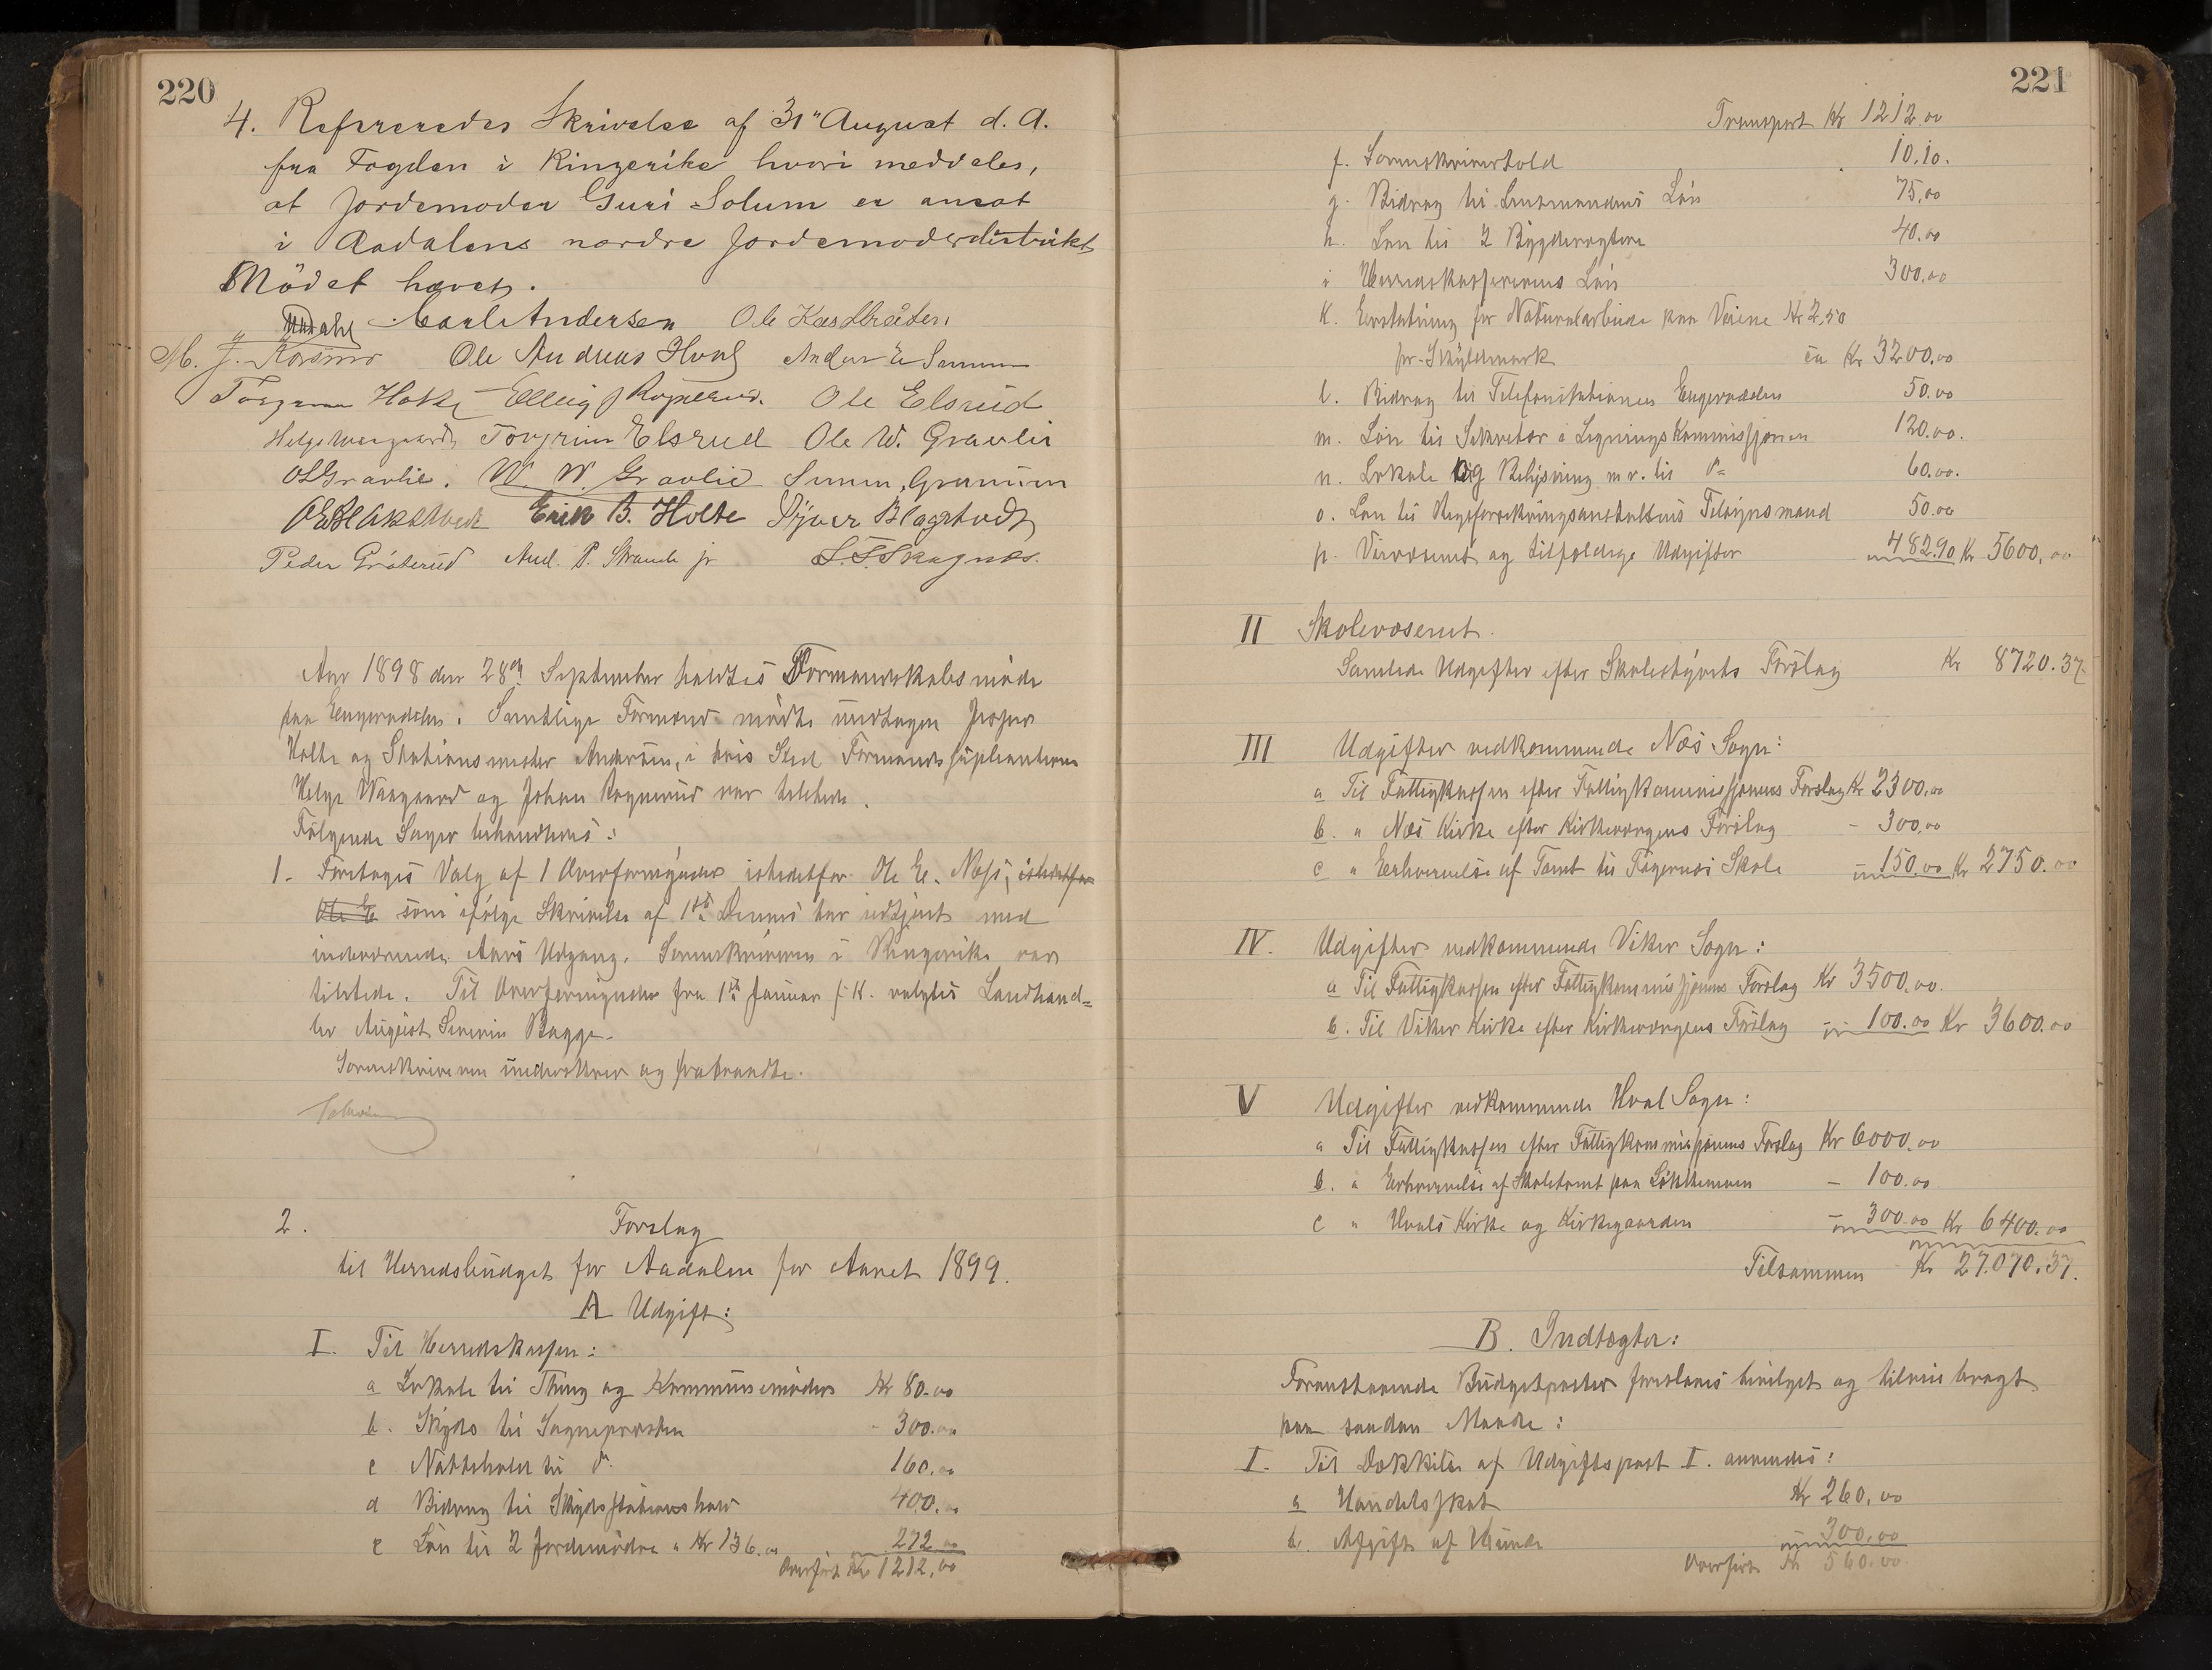 220
4. Refereredes Skrivelse af 31" August d. A.
fra Fogden i Ringerike hvori meddeles,
at Jordemoder Guri Solum er ansat
i Aadalens nordre Jordemoderdistrikt
Mödet hævet.
Carl Andersen Ole Kastbråten
M. J. Kosmo Ole Andreas Hval
Holte Ole Elsrud
Torgrim Elsrud Ole W. Gravlie
O L Gravlie. W. W. Gravlie
Erik B. Holte
Peder Gröterud And. P. Strande jr
Aar 1898 den 28de September holdtes Formandskabsmöde
paa Engerodden. Samtlige Formænd mödte undtagen
Holte og Stationsmester Andersen, i hvis Sted Formandssuplianterne
Helge Waagaard og Johan var tilstede.
Fölgende Sager behandledes:
1. Foretoges Valg af 1 Overformynder istedetfor Ole E. Næss, istedetfor
Ole E som ifölge Skrivelse af 1ste Dennes har udtjent med
indeværende Aars Udgang. Sorenskriveren i Ringerike var
tilstede. Til Overformynder fra 1ste Januar f. K. valgtes Landhand=
ler August Severin Bagge.
Sorenskriveren underskrev og fratraadte.
2. Forslag
til Herredsbudget for Aadalen for Aaret 1899.
A Udgift:
I. Til Herredskassen:
a Lokale til Thing og Kommunemöder Kr 80.00
b. Skyds til Sognepræsten - 300.00
c Nattehold til do 160.00
d Bidrag til Skydsstationshold 400.00
e Lön til 2 Jordemödre a Kr 136.00 272.00
Overfört Kr 1212.00
221
Transport Kr 1212.00
f. Sorenskrivertold 10.10.
g. Bidrag til Lensmandens Lön 75,00
h. Lön til 2 Bygdevægtere 40.00
i Herredskassererens Lön 300,00
K. Erstatning for Naturalarbeide paa Veiene Kr 2,50
pr. Skyldmark ca Kr 3200.00
l. Bidrag til Telefonstationen Engerodden 50.00
m. Lön til Sekretær i Ligningskommissjonen 120.00.
n. Lokale og Belysning m.v. til do 60.00.
o. Lön til Tilsynsmand 50.00
p. Veivæsenet og tilfældige Udgifter 482.90 Kr 5600,00
II Skolevæsenet.
Samlede Udgifter efter Skolestyrets Forslag Kr 8720.37
III Udgifter vedkommende Næs Sogn:
a Til Fattigkassen efter Fattigkommissjonens Forslag Kr 2300,00
b. " Næs Kirke efter Kirkeværgens Forslag - 300,00
c " Erhvervelse af Tomt til Fagernæs Skole 150.00 Kr 2750.00
IV. Udgifter vedkommende Viker Sogn:
a Til Fattigkassen efter Fattigkommissjonens Forslag Kr 3500.00.
b. Til Viker Kirke efter Kirkeværgens Forslag 100.00 Kr 3600.00
V Udgifter vedkommende Hval Sogn:
a Til Fattigkassen efter Fattigkommissjonens Forslag Kr 6000.00
b. " Erhvervelse af Skoletomt paa - 100.00
c " Hvals Kirke og Kirkegaarden 300.00 Kr 6400.00
Tilsammen Kr 27.070.37.
B. Indtægter:
Foranstaaende Budgetposter foreslaaes bevilget og tilveiebragt
paa saadan Maade:
I. Til Dækkelse af Udgiftspost I. anvendes:
a Handelsskat Kr 260,00
b. Afgift af Hunde 300,00
Overfört Kr 560.00.